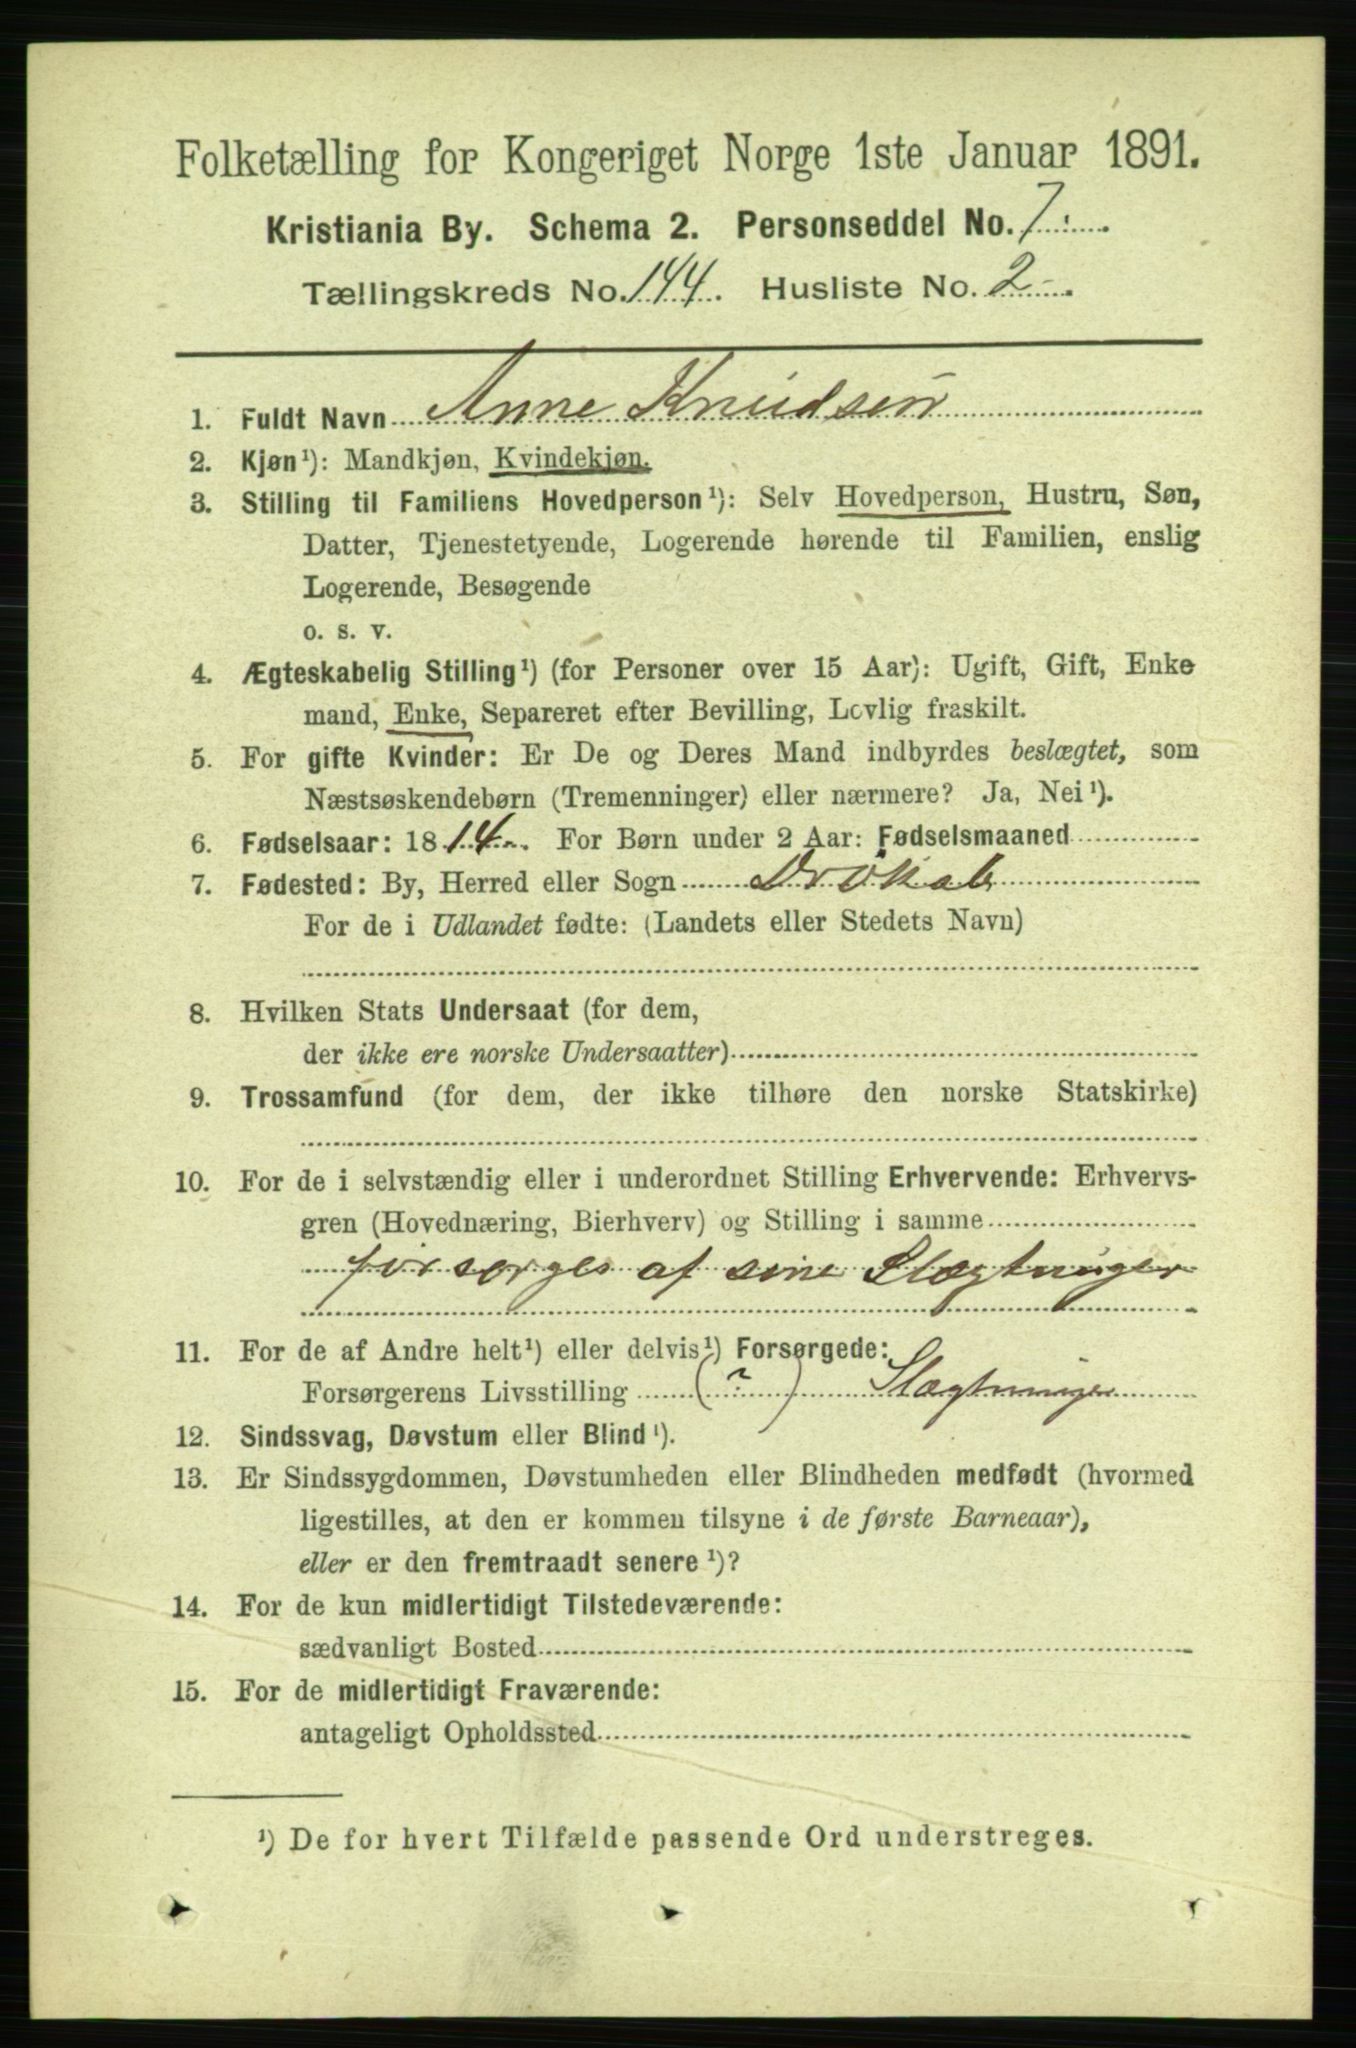 Folketælling for Kongeriget Norge 1ste Januar 1891.
Kristiania By. Schema 2. Personseddel No. 7.
Tællingskreds No. 144. Husliste No. 2.
1. Fuldt Navn Anne Knudsen
2. Kjøn¹): Mandkjøn, Kvindekjøn.
3. Stilling til Familiens Hovedperson¹): Selv Hovedperson, Hustru, Søn,
Datter, Tjenestetyende, Logerende hørende til Familien, enslig
Logerende, Besøgende
o. s. v.
4. Ægteskabelig Stilling¹) (for Personer over 15 Aar): Ugift, Gift, Enke
mand, Enke, Separeret efter Bevilling, Lovlig fraskilt.
5. For gifte Kvinder: Er De og Deres Mand indbyrdes beslægtet, som
Næstsøskendebørn (Tremenninger) eller nærmere? Ja, Nei¹).
6. Fødselsaar: 1814. For Børn under 2 Aar: Fødselsmaaned
7. Fødested: By, Herred eller Sogn Drökab
For de i Udlandet fødte: (Landets eller Stedets Navn)
8. Hvilken Stats Undersaat (for dem,
der ikke ere norske Undersaatter)
9. Trossamfund (for dem, der ikke tilhøre den norske Statskirke)
10. For de i selvstændig eller i underordnet Stilling Erhvervende: Erhvervs-
gren (Hovednæring, Bierhverv) og Stilling i samme
forsørges af sine Slægtninger
11. For de af Andre helt¹) eller delvis¹) Forsørgede:
Forsørgerens Livsstilling (?) Slægtninger
12. Sindssvag, Døvstum eller Blind¹).
13. Er Sindssygdommen, Døvstumheden eller Blindheden medfødt (hvormed
ligestilles, at den er kommen tilsyne i de første Barneaar),
eller er den fremtraadt senere¹)?
14. For de kun midlertidigt Tilstedeværende:
sædvanligt Bosted
15. For de midlertidigt Fraværende:
antageligt Opholdssted
¹) De for hvert Tilfælde passende Ord understreges.